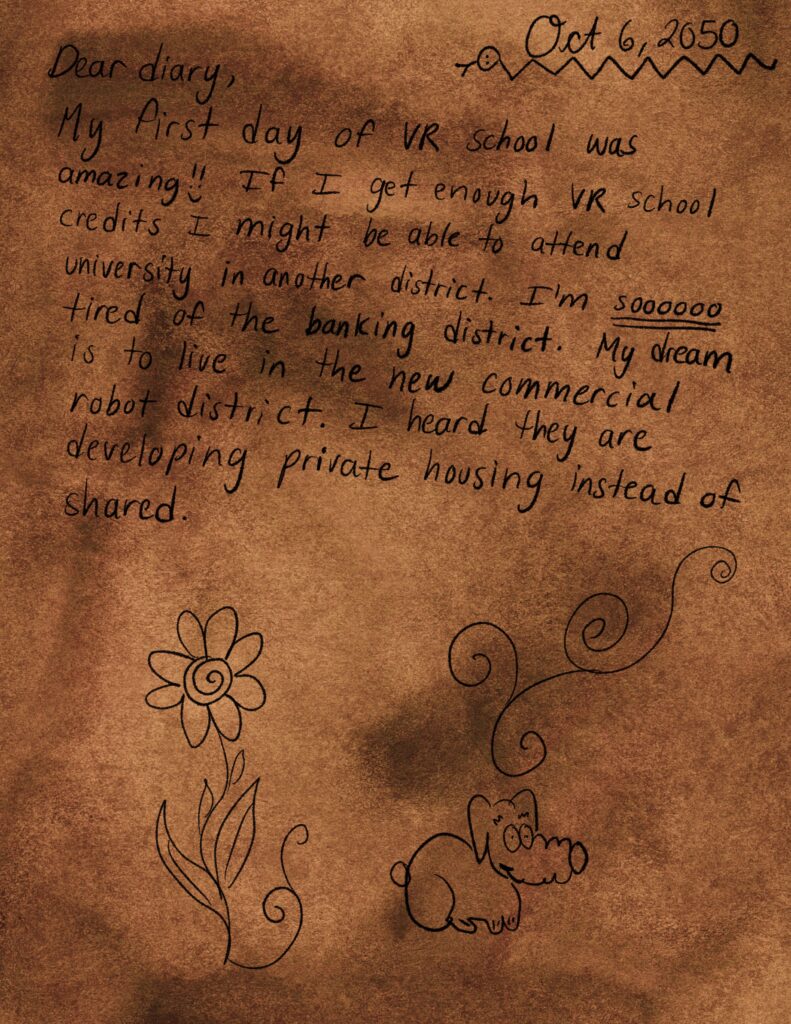 Oct 6, 2050
Dear diary,
My first day of VR school was
amazing!! If I get enough VR school
credits I might be able to attend
university in another district. I'm soooooo
tired of the banking district. My dream
is to live in the new commercial
robot district. I heard they are
developing private housing instead of
shared.